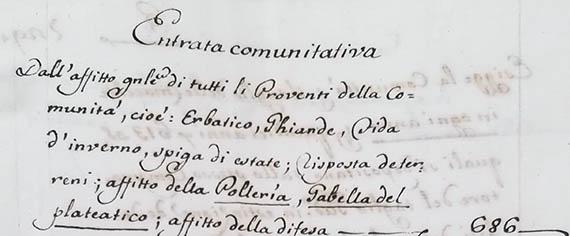 Entrata comunitativa
Dall'affitto gnle di tutti li Proventi della Co=
munità, cioè: Erbatico, Ghiande, Fida
d'inverno, spiga di estate; Risposta de ter=
reni; affitto della Polteria, Tabella del
plateatico; affitto della difesa 686